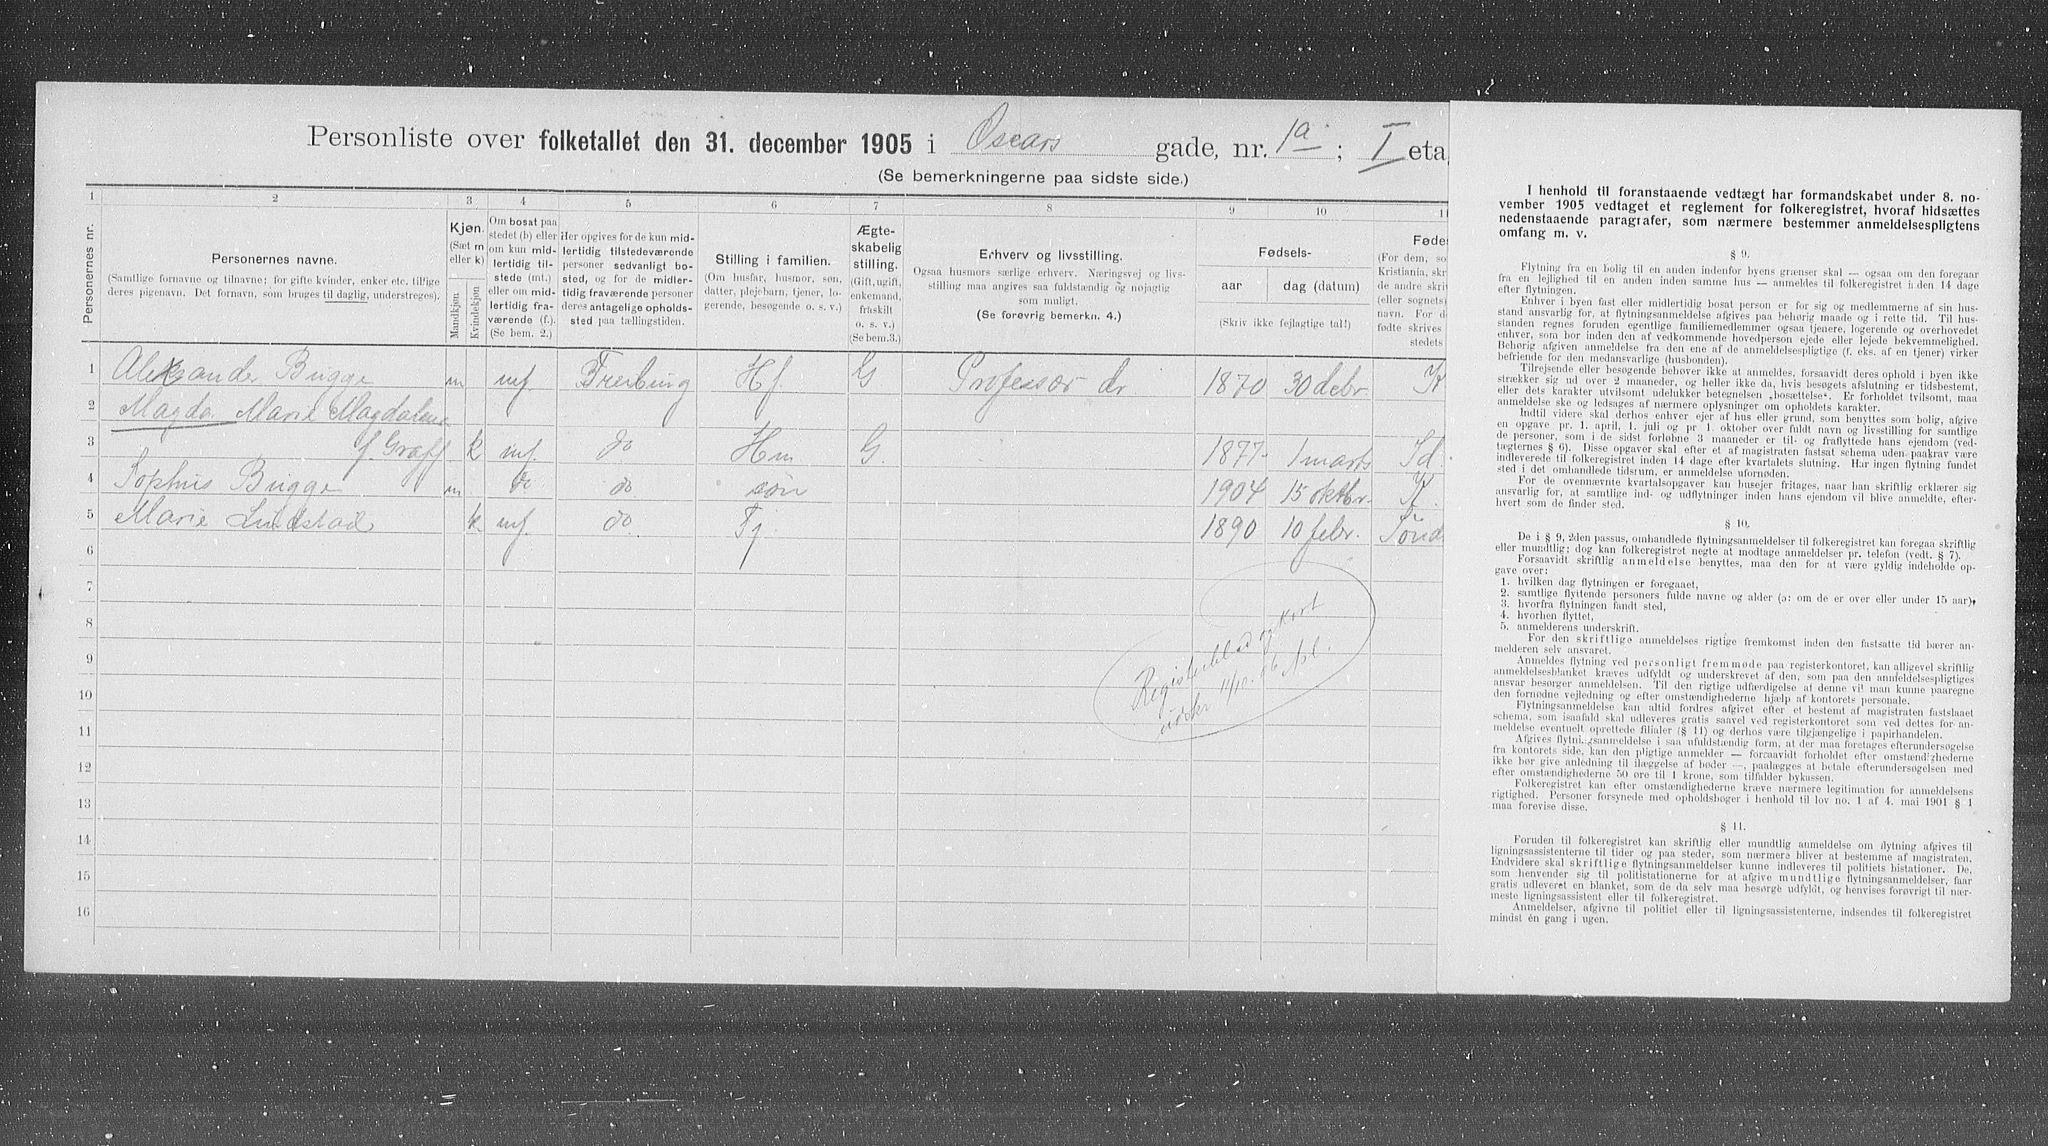 Personliste over folketallet den 31. december 1905 i Oscars gade, nr. 1a ; I eta
(Se bemerkningerne paa sidste side.)
1 2 3 4 5 6 7 8 9 10 11
Personernes nr.
Personernes navne.
(Samtlige fornavne og tilnavne; for gifte kvinder, enker etc. tillige
deres pigenavn. Det fornavn, som bruges til daglig, understreges).
Kjøn.
(Sæt m
eller k)
Mandkjøn
Kvindekjøn
Om bosat paa
stedet (b) eller
om kun mid-
lertidig til-
stede (mt.)
eller om mid-
lertidig fra-
værende (f.).
(Se bem. 2.)
Her opgives for de kun mid-
lertidig tilstedeværende
personer sedvanligt bo-
sted, og for de midler-
tidig fraværende personer
deres antagelige opholds-
sted paa tællingstiden.
Stilling i familien.
(Om husfar, husmor, søn,
datter, plejebarn, tjener, lo-
gerende, besøgende o. s. v.)
Ægte-
skabelig
stilling.
(Gift, ugift,
enkemand,
fraskilt
o. s. v.)
(Se bem.3.)
Erhverv og livsstilling.
Ogsaa husmors særlige erhverv. Næringsvej og livs-
stilling maa angives saa fuldstændig og nøjagtig
som muligt.
(Se forøvrig bemerkn. 4.)
Fødsels-
aar dag (datum)
(Skriv ikke fejlagtige tal!)
Fødes
(For dem, so
Kristiania, skri
de andre skri
(eller sognets)
navn. For de
fødte skrives
stedets
1 Alexander Bugge m mf. Freiburg Hf. G Professor dr 1870 30 debr. K
2 Magda Marie Magdalena
3 f. Graff k mf. do Hm G. 1877 1 marts Id
4 Sophus Bugge m do do søn 1904 15 oktbr. K.
5 Marie Lundstad k mf. do. Tj. 1890 10 febr. Sønd
6
7
8
9
10
11
12
13
14
15
16
Registerblad og kort
I henhold til foranstaaende vedtægt har formandskabet under 8. no-
vember 1905 vedtaget et reglement for folkeregistret, hvoraf hidsættes
nedenstaaende paragrafer, som nærmere bestemmer anmeldelsespligtens
omfang m. v.
§ 9.
Flytning fra en bolig til en anden indenfor byens grænser skal — ogsaa om den foregaar
fra en lejlighed til en anden inden samme hus — anmeldes til folkeregistret inden 14 dage
efter flytningen.
Enhver i byen fast eller midlertidig bosat person er for sig og medlemmerne af sin hus-
stand ansvarlig for, at flytningsanmeldelse afgives paa behørig maade og i rette tid. Til hus-
standen regnes foruden egentlige familiemedlemmer ogsaa tjenere, logerende og overhovedet
enhver, som bor inden den af vedkommende hovedperson ejede eller lejede bekvemmelighed.
Behørig afgiven anmeldelse fra den ene af de anmeldelsespligtige (f. eks. af en tjener) virker
befriende for den medansvarlige (husbonden).
Tilrejsende eller besøgende behøver ikke at anmeldes, forsaavidt deres ophold i byen ikke
strækker sig ud over 2 maaneder, og heller ikke da, hvis besøgets afslutning er tidsbestemt,
eller dets karakter utvilsomt udelukker betegnelsen „bosættelse“. Er forholdet tvilsomt, maa
anmeldelse ske og ledsages af nærmere oplysninger om opholdets karakter.
Indtil videre skal derhos enhver ejer af hus eller grund, som benyttes som bolig, afgive
en opgave pr. 1. april, 1. juli og pr 1. oktober over fuldt navn og livsstilling for samtlige
de personer, som i de sidst forløbne 3 maaneder er til- og fraflyttede hans ejendom (ved-
tægternes § 6). Disse opgaver skal efter et af magistraten fastsat schema uden paakrav være
indleverede til folkeregistret inden 14 dage efter kvartalets slutning. Har ingen flytning fundet
sted i det omhandlede tidsrum, er anmeldelse ufornøden.
For de ovennævnte kvartalsopgaver kan husejer fritages, naar han skriftlig erklærer sig
ansvarlig for, at samtlige ind- og udflytninger inden hans ejendom vil blive anmeldte, efter-
hvert som de finder sted.
§ 10.
De i § 9, 2den passus, omhandlede flytningsanmeldelser til folkeregistret kan foregaa skriftlig
eller mundtlig; dog kan folkeregistret negte at modtage anmeldelser pr. telefon (vedt. § 7).
Forsaavidt skriftlig anmeldelse benyttes, maa den for at være gyldig indeholde op-
gave over:
1. hvilken dag flytningen er foregaaet,
2. samtlige flyttende personers fulde navne og alder (ɔ: om de er over eller under 15 aar),
3. hvorfra flytningen fandt sted,
4. hvorhen flyttet,
5. anmelderens underskrift.
For den skriftlige anmeldelses rigtige fremkomst inden den fastsatte tid bærer an-
melderen selv ansvaret.
Anmeldes flytning ved personligt fremmøde paa registerkontoret, kan alligevel skriftlig
anmeldelsesblanket kræves udfyldt og underskrevet af den, som paa den anmeldelsespligtiges
ansvar besørger anmeldelsen. Til den rigtige udfærdigelse af denne vil man kunne paaregne
den fornødne vejledning og efter omstændighederne hjælp af kontorets personale.
Flytningsanmeldelse kan altid fordres afgivet efter et bestemt af magistraten fastslaaet
schema, som isaafald skal udleveres gratis saavel ved registerkontoret som ved dettes for an-
meldelse eventuelt oprettede filialer (§ 11) og derhos være tilgjængelige i papirhandelen.
Afgives flytningsanmeldelse i saa ufuldstændig form, at der maa foretages efterundersøgelse
fra kontorets side, kan den pligtige anmelder — forsaavidt forholdet efter omstændighederne
ikke bør give anledning til ilæggelse af bøder —, paalægges at betale efterundersøgelsen med
efter omstændighederne 50 øre til 1 krone, som tilfalder bykassen.
Folkeregistret kan efter omstændighederne kræve nærmere legitimation for anmeldelsens
rigtighed. Personer forsynede med opholdsbøger i henhold til lov no. 1 af 4. mai 1901 § 1
maa forevise disse.
§ 11.
Foruden til folkeregistret kan skriftlig eller mundtlig anmeldelse om flytning afgives til
ligningsassistenterne til tider og paa steder, som nærmere bliver at bestemme af magistraten.
Endvidere skal skriftlige flytningsanmeldelser kunne indleveres til politiets bistationer. De,
som henvender sig til politistationerne for at afgive mundtlige flytningsanmeldelser, faar
gratis udleveret en blanket, som de da selv maa besørge udfyldt, og henvises forøvrigt til nær-
meste ligningsassistent eller til folkeregistret.
Anmeldelser, afgivne til politiet eller til ligningsassistenterne, indsendes til folkeregistret
mindst én gang i ugen.